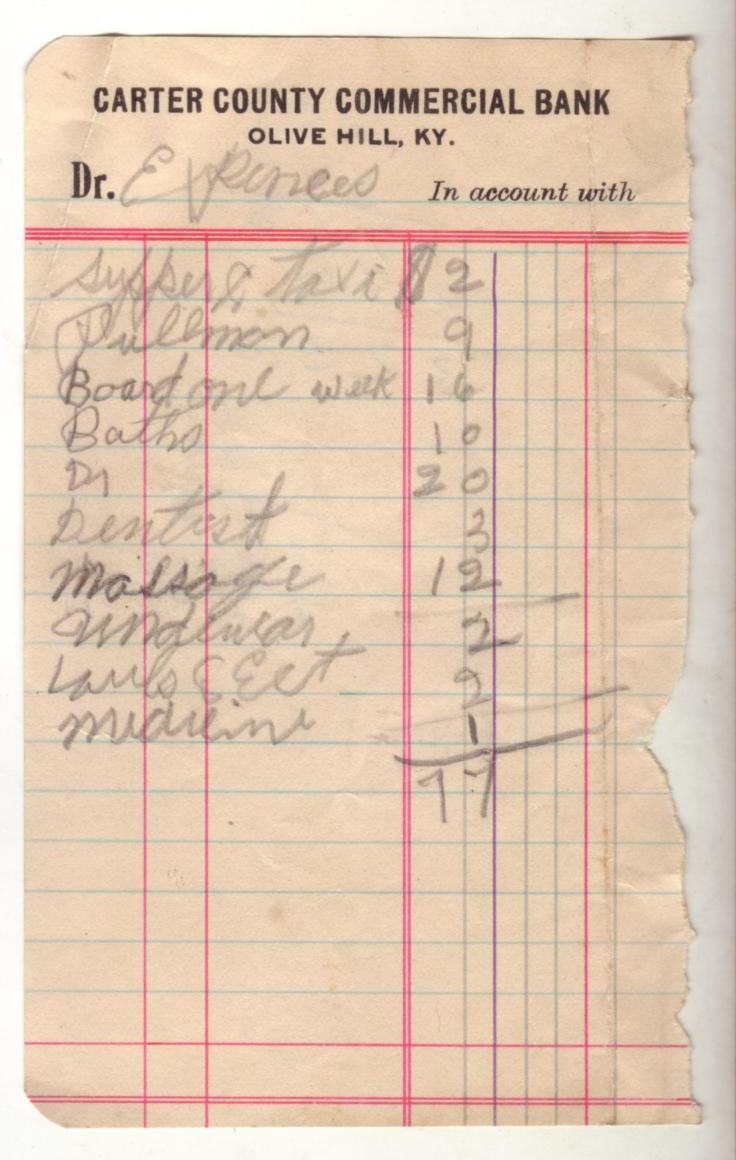 CARTER COUNTY COMMERCIAL BANK
OLIVE HILL, KY.
Dr. Expences In account with
Supper & Taxi $2
Pullman 9
Board one week 16
Baths 10
Dr 20
Dentist 3
Massage 12
Underwear 2
& Ect 2
Medicine 1
77